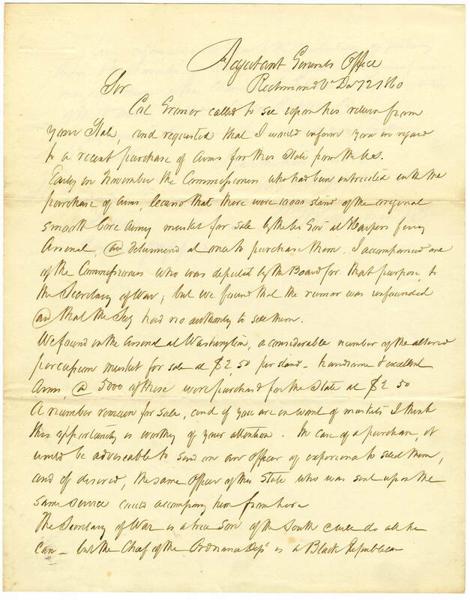 Adjutant Generals Office
Richmond Va Dec 1860
Sir
Col called to see upon his return from
your State, and requested that I would inform you in regard
to a recent purchase of Arms for this State from the U.S.
Early in November the Commissioners who had been entrusted with the
purchase of Arms, learn'd that there were 10000 stand of the original
smooth bore Army musket for sale by the U.S. Gov't at Harpers ferry
Arsenal, determined at once to purchase them. I accompanied one
of the Commissioners who was deputed by the Board for that purpose, to
the Secretary of War; but we found that the rumor was unfounded
that the Sec'y had no authority to sell them.
We found in the Arsenal at Washington, a considerable number of the altered
percussion musket for sale at $2,50 per stand - handsome & excellent
Arms, 5000 of these were purchased for the State at $2.50
A number remain for sale, and if you are in want of muskets I think
this opportunity is worthy of your attention. In case of a purchase, it
would be adviseable to send on an officer of experience to select them,
and if desired, the same officer of this State who was sent upon the
same service could accompany him from here
The Secretary of War is a true son of the South & will do all he
can - but the Chief of the Ordnance Dep't is a Black Republican